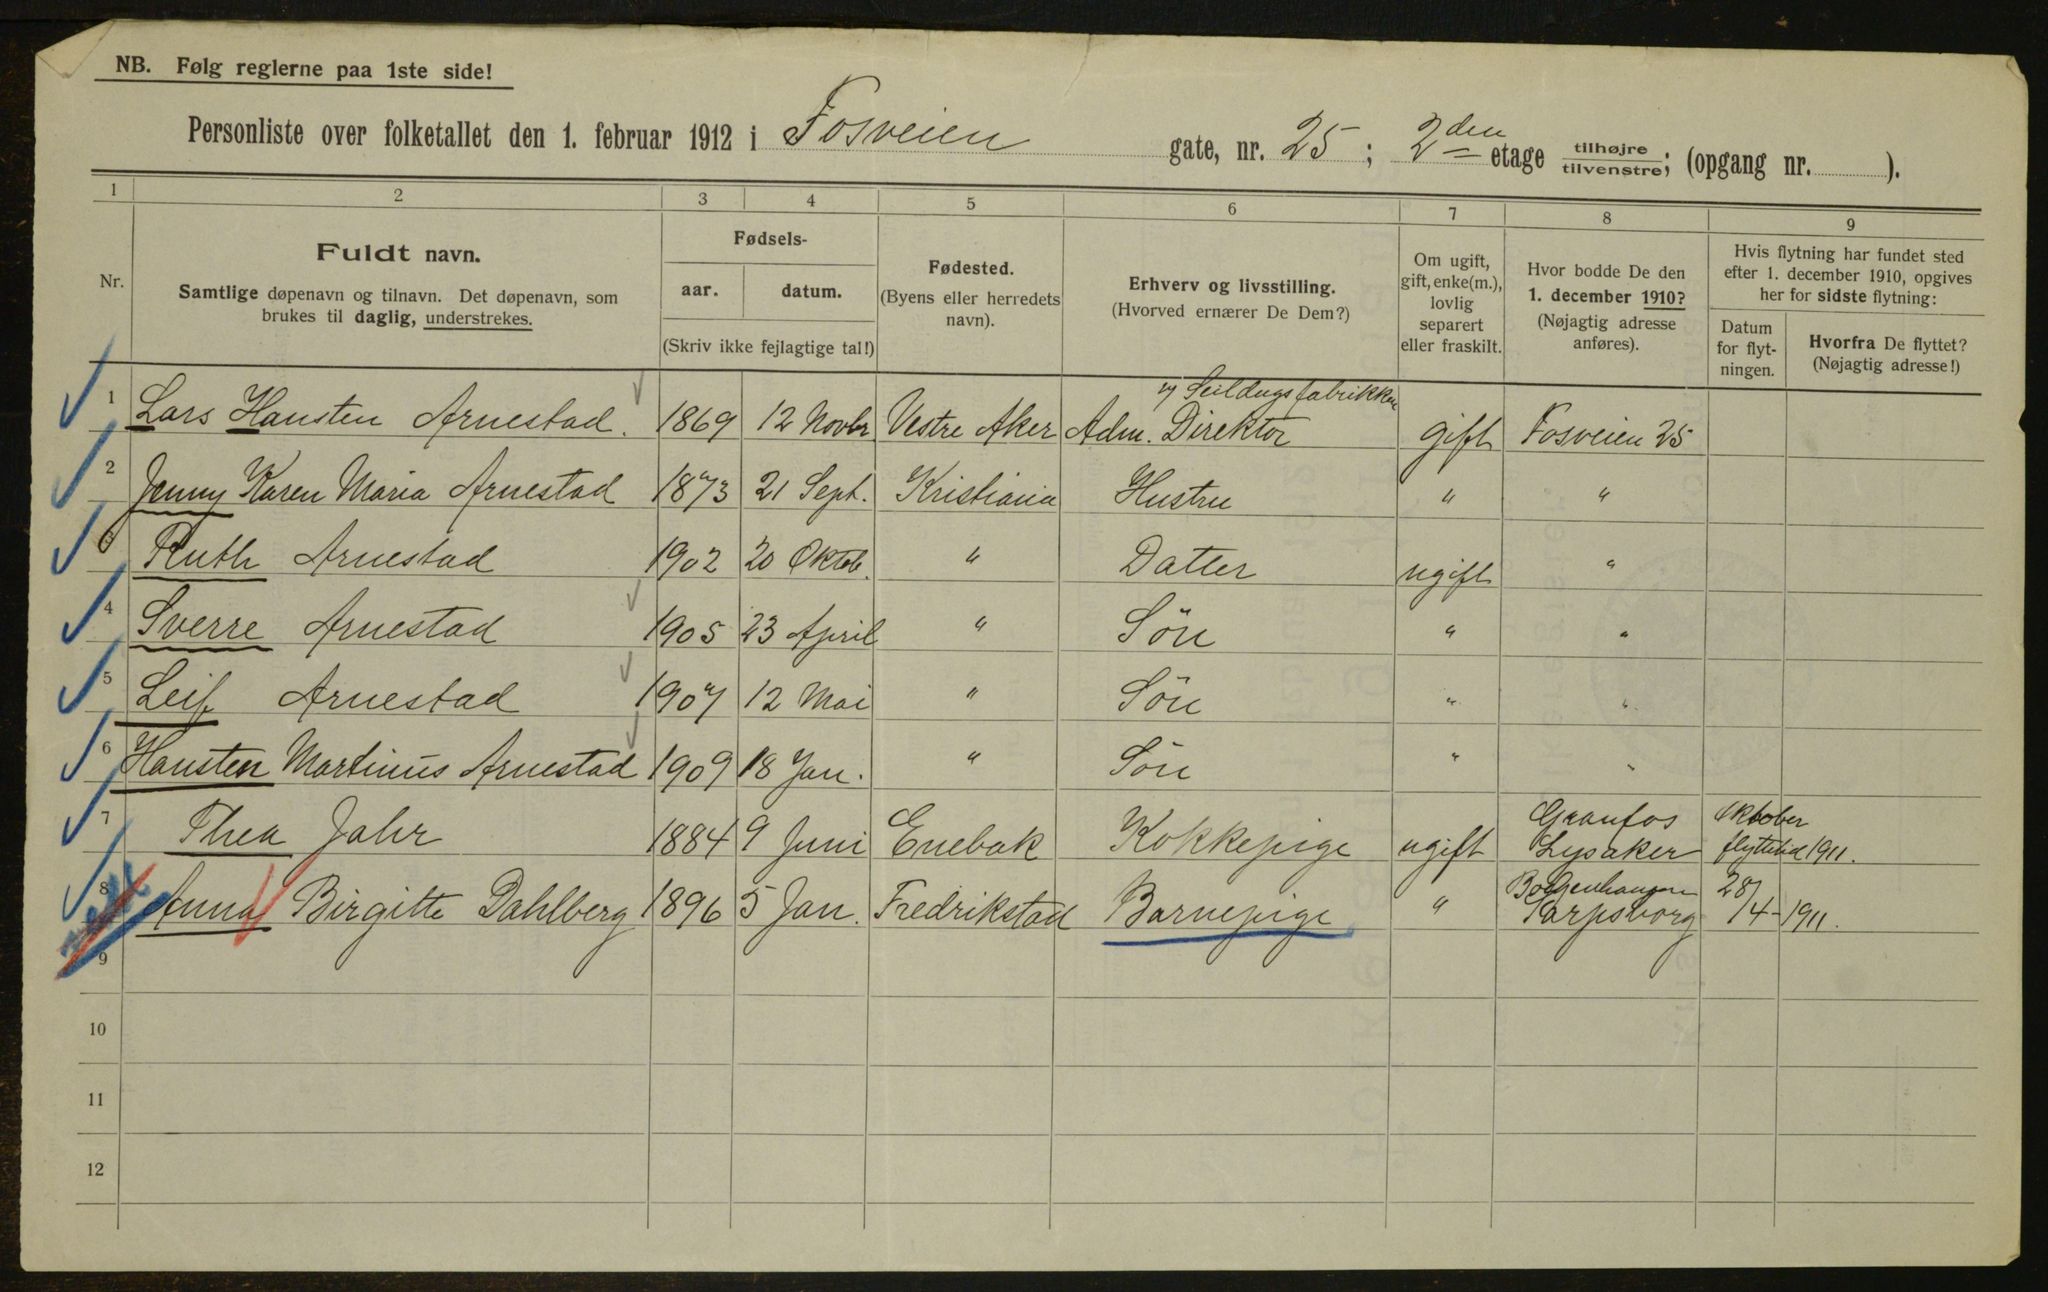 NB. Følg reglerne paa 1ste side!
Personliste over folketallet den 1. februar 1912 i Fosveien gate, nr. 25; 2den etage tilhøjre/tilvenstre; (opgang nr. ).
1 2 3 4 5 6 7 8 9
Nr.
Fuldt navn.
Samtlige døpenavn og tilnavn. Det døpenavn, som
brukes til daglig, understrekes.
Fødsels-
aar. datum.
(Skriv ikke fejlagtige tal!)
Fødested.
(Byens eller herredets
navn).
Erhverv og livsstilling.
(Hvorved ernærer De Dem?)
Om ugift,
gift, enke(m.),
lovlig
separert
eller fraskilt.
Hvor bodde De den
1. december 1910?
(Nøjagtig adresse
anføres).
Hvis flytning har fundet sted
efter 1. december 1910, opgives
her for sidste flytning:
Datum
for flyt-
ningen.
Hvorfra De flyttet?
(Nøjagtig adresse!)
v/ Seildugsfabrikken
1 Lars Hansten Arnestad. 1869 12 Novbr Vestre Aker Adm. Direktör gift Fosveien 25
2 Jenny Karen Maria Arnestad 1873 21 Sept. Kristiania Hustru " "
3 Ruth Arnestad 1902 20 Oktob. " Datter ugift "
4 Sverre Arnestad 1905 23 April " Sön " "
5 Leif Arnestad 1907 12 Mai " Sön " "
6 Hansten Martinius Arnestad 1909 18 Jan. " Sön " "
7 Thea Jahr 1884 9 Juni Enebak Kokkepige ugift Granfos Lysaker Oktober flyttetid 1911.
8 Anna Birgitte Dahlberg 1896 5 Jan. Fredrikstad Barnepige " Sarpsborg 28/4-1911.
9
10
11
12